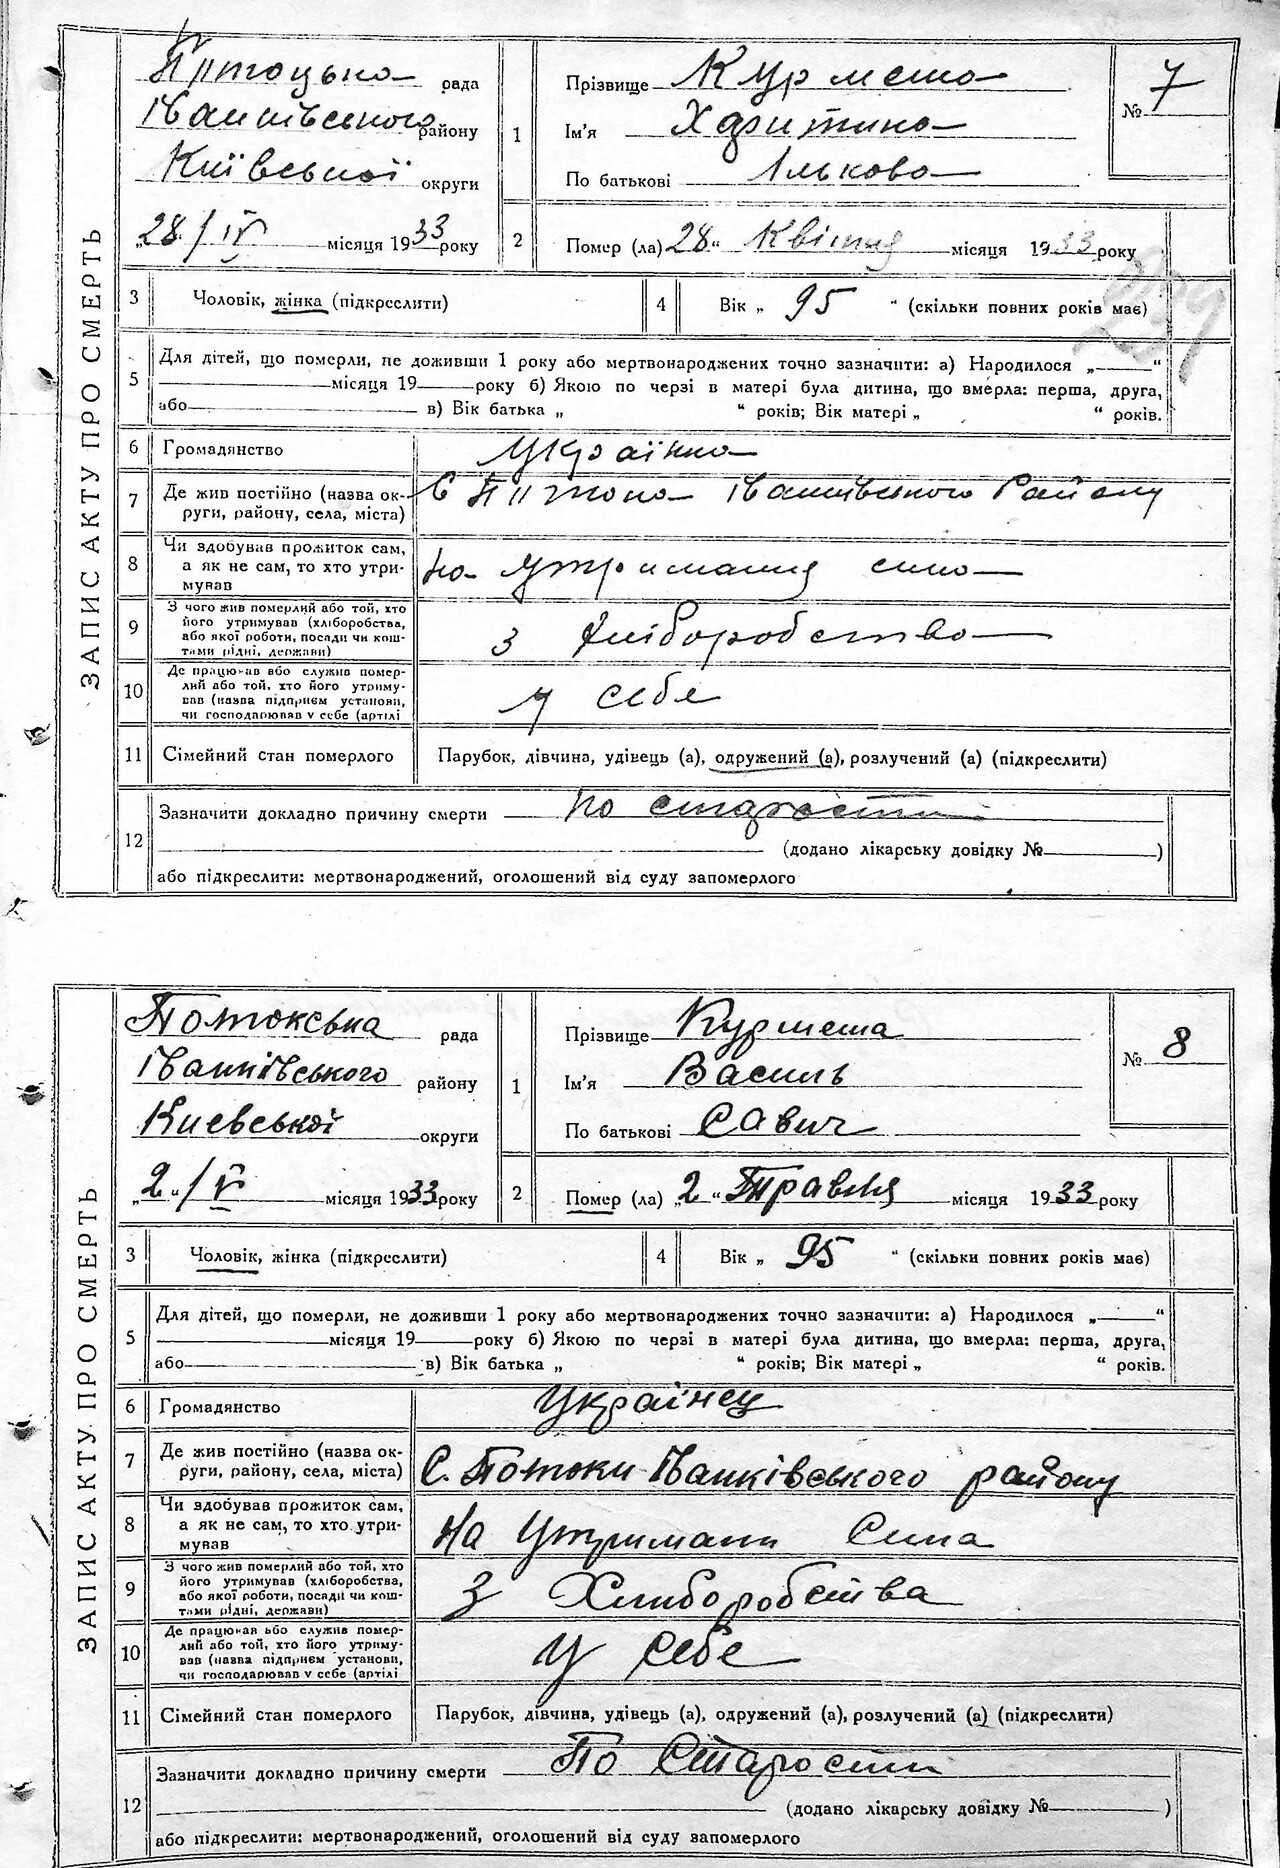 ЗАПИС АКТУ ПРО СМЕРТЬ
рада
Іванківського району
Київської округи
„28 / IV місяця 1933 року
1
Прізвище Курмеша
Ім'я Харитина
По батькові Ількова
№ 7
2
Помер (ла) 28 „ Квітня місяця 1933 року
3 Чоловік, жінка (підкреслити)
4 Вік „ 95 “ (скільки повних років має)
5 Для дітей, що померли, не доживши 1 року або мертвонароджених точно зазначити: а) Народилося „ “
місяця 19 року б) Якою по черзі в матері була дитина, що вмерла: перша, друга,
або в) Вік батька „ “ років; Вік матері „ “ років.
6 Громадянство Українка
7 Де жив постійно (назва ок-
руги, району, села, міста)
С Іванківського Району
8 Чи здобував прожиток сам,
а як не сам, то хто утри-
мував
на утримания сина
9 З чого жив померлий або той, хто
його утримував (хліборобства,
або якої роботи, посади чи кош-
тами рідні, держави)
з хліборобства
10 Де працював або служив помер-
лий або той, хто його утриму-
вав (назва підприєм установи,
чи господарював у себе (артілі
у себе
11 Сімейний стан померлого Парубок, дівчина, удівець (а), одружений (а), розлучений (а) (підкреслити)
12 Зазначити докладно причину смерти по старости
(додано лікарську довідку № )
або підкреслити: мертвонароджений, оголошений від суду запомерлого
ЗАПИС АКТУ ПРО СМЕРТЬ
Потокська рада
Іванківського району
Києвської округи
„2 “ / V місяця 1933 року
1
Прізвище Курмеша
Ім'я Василь
По батькові Савич
№ 8
2
Помер (ла) „2 “ Травля місяця 1933 року
3 Чоловік, жінка (підкреслити)
4 Вік „ 95 “ (скільки повних років має)
5 Для дітей, що померли, не доживши 1 року або мертвонароджених точно зазначити: а) Народилося „ “
місяця 19 року б) Якою по черзі в матері була дитина, що вмерла: перша, друга,
або в) Вік батька „ “ років; Вік матері „ “ років.
6 Громадянство Українец
7 Де жив постійно (назва ок-
руги, району, села, міста)
С. Потоки Іванківського району
8 Чи здобував прожиток сам,
а як не сам, то хто утри-
мував
На Утримани Сина
9 З чого жив померлий або той, хто
його утримував (хліборобства,
або якої роботи, посади чи кош-
тами рідні, держави)
З Хлиборобства
10 Де працював або служив помер-
лий або той, хто його утриму-
вав (назва підприєм установи,
чи господарював у себе (артілі
У Себе
11 Сімейний стан померлого Парубок, дівчина, удівець (а), одружений (а), розлучений (а) (підкреслити)
12 Зазначити докладно причину смерти По Старости
(додано лікарську довідку № )
або підкреслити: мертвонароджений, оголошений від суду запомерлого